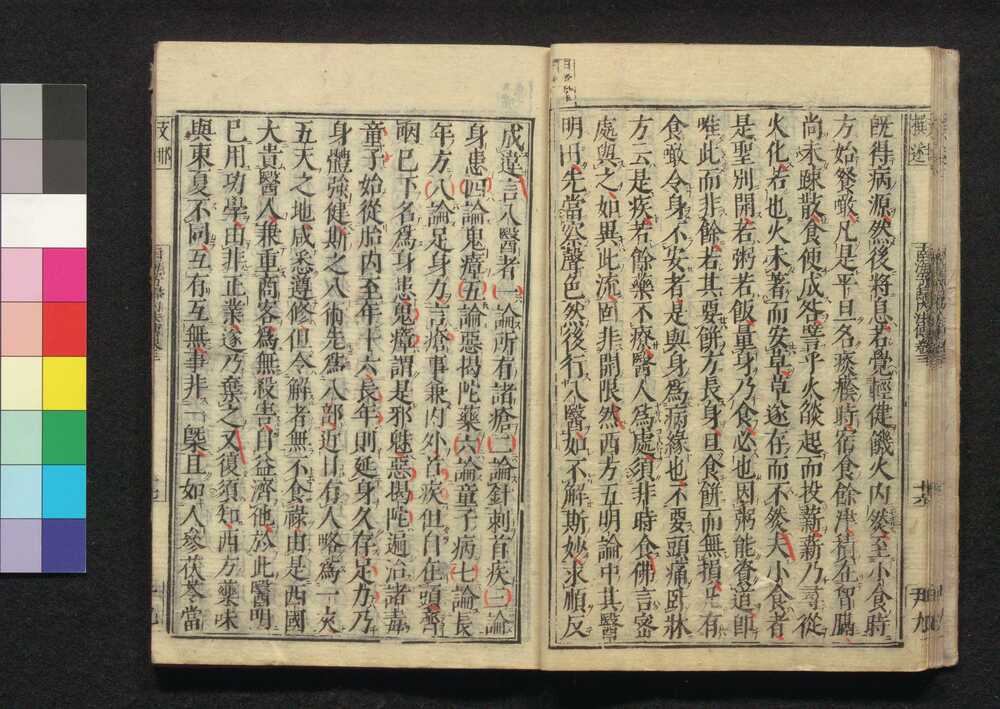 既得病源然後將息若覺輕健饑火內然至小食時
方始餐噉凡是平旦名痰癊時宿食餘津積在胷膈
尚未踈散食便成咎譬乎火燄起而投薪薪乃尋從
火化若也火未著而安草草遂存而不然夫小食者
是聖別開若粥若飯量身乃食必也因粥能資道即
唯此而非餘若其要餅方長身旦食餅而無損凡有
食噉令身不安者是與身爲病緣也不要頭痛臥牀
方云是疾若餘藥不療醫人爲處須非時食佛言密
處與之如異此流固非開限然西方五明論中其醫
明曰先當察聲色然後行八醫如不解斯妙求順反
成違言八醫者一論所有諸瘡二論針刺首疾三論
身患四論鬼瘴五論惡揭陀藥六論童子病七論長
年方八論足身力言瘡事兼內外首疾但自在頭齊
咽已下名爲身患鬼瘴謂是邪魅惡揭陀遍治諸毒
童子始從胎內至年十六長年則延身久存足力乃
身體強健斯之八術先爲八部近日有人略爲一夾
五天之地咸悉遵修但令解者無不食祿由是西國
大貴醫人兼重商客爲無殺害自益濟他於此醫明
已用功學由非正業遂乃棄之又復須知西方藥味
與東夏不同互有互無事非一槩且如人參茯苓當